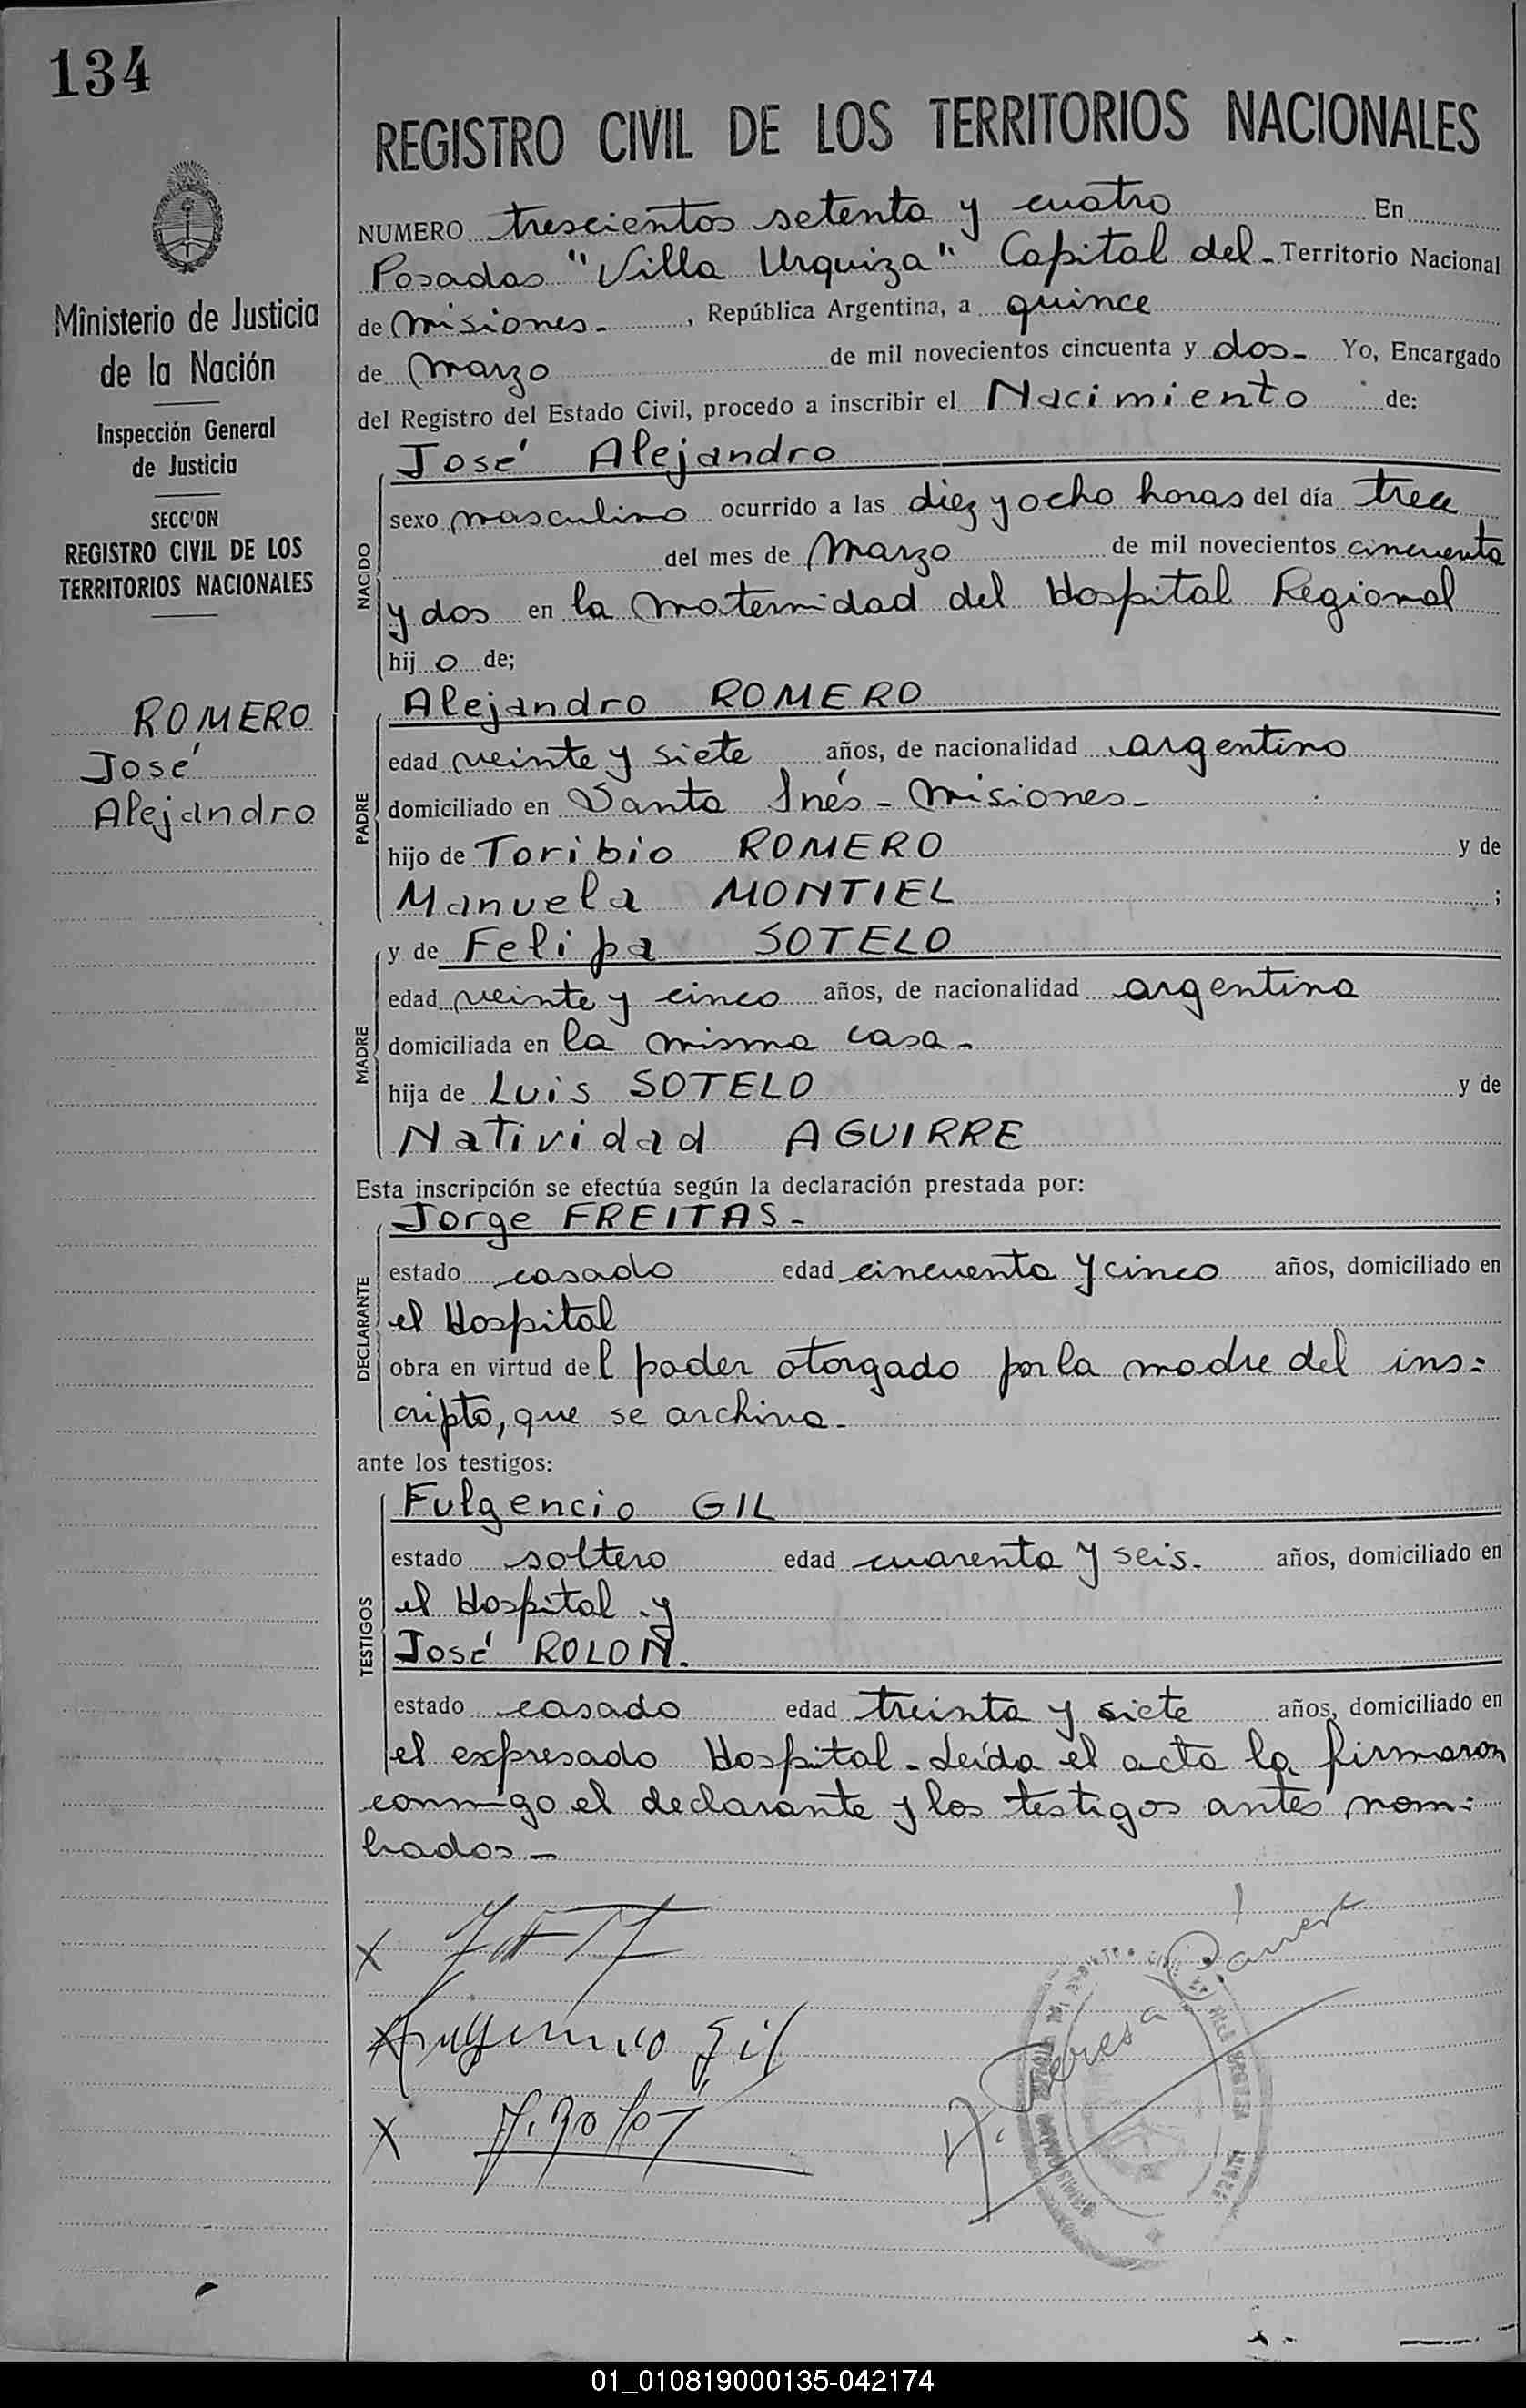 134
Ministerio de Justicia
de la Nación
Inspección General
de Justicia
SECC'ON
REGISTRO CIVIL DE LOS
TERRITORIOS NACIONALES
ROMERO
José
Alejandro
REGISTRO CIVIL DE LOS TERRITORIOS NACIONALES
NUMERO trescientos setenta y cuatro En
Posadas "Villa Urquiza" Capital del - Territorio Nacional
de Misiones - , República Argentina, a quince
de Marzo de mil novecientos cincuenta y dos - Yo, Encargado
del Registro del Estado Civil, procedo a inscribir el Nacimiento de:
José Alejandro
NACIDO
sexo masculino ocurrido a las diez y ocho horas del día trece
del mes de Marzo de mil novecientos cincuenta
y dos en la Maternidad del Hospital Regional
hijo de;
Alejandro ROMERO
PADRE
edad veinte y siete años, de nacionalidad argentino
domiciliado en Santa Inés - Misiones -
hijo de Toribio ROMERO y de
Manuela MONTIEL ;
y de Felipa SOTELO
MADRE
edad veinte y cinco años, de nacionalidad argentina
domiciliada en la misma casa -
hija de Luis SOTELO y de
Natividad AGUIRRE
Esta inscripción se efectúa según la declaración prestada por:
Jorge FREITAS -
DECLARANTE
estado casado edad cincuenta y cinco años, domiciliado en
el Hospital
obra en virtud del poder otorgado por la madre del ins=
cripto, que se archiva -
ante los testigos:
Fulgencio GIL
TESTIGOS
estado soltero edad cuarenta y seis - años, domiciliado en
el Hospital y
José ROLON.
estado casado edad treinta y siete años, domiciliado en
el expresado Hospital - Leída el acta la firmaron
conmigo el declarante y los testigos antes nom=
brados -
Fulgencio Gil
J. Rolon
01_010819000135-042174